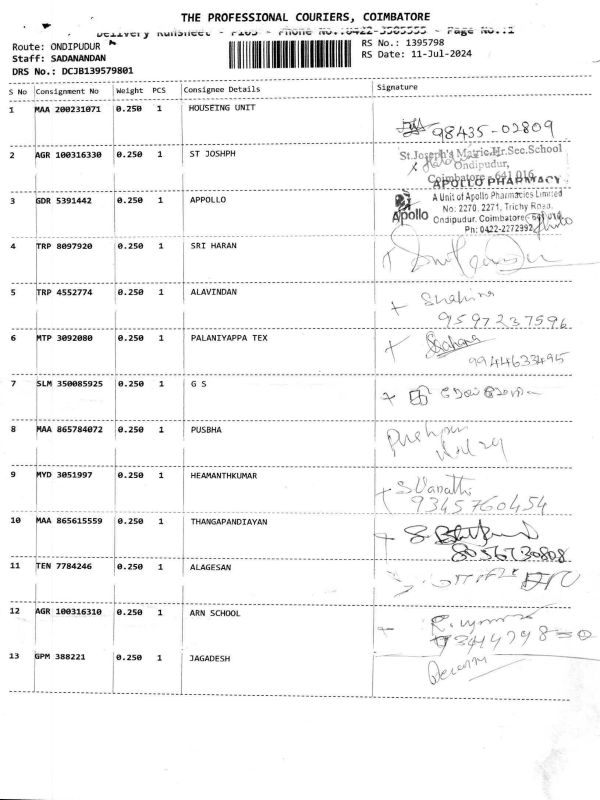 THE PROFESSIONAL COURIERS, COIMBATORE
Delivery Runsheet - P105 - Phone No.:0422-3505555 - Page No.:1
Route: ONDIPUDUR
RS No.: 1395798
Staff: SADANANDAN
RS Date: 11-Jul-2024
DRS No.: DCJB139579801
S No Consignment No Weight PCS Consignee Details Signature
1 MAA 200231071 0.250 1 HOUSEING UNIT
98435-02809
2 AGR 100316330 0.250 1 ST JOSHPH
St.Joseph's Matric.Hr.Sec.School
Ondipudur,
Coimbatore - 641 016
APOLLO PHARMACY
3 GDR 5391442 0.250 1 APPOLLO
A Unit of Apollo Pharmacies Limited
No: 2270, 2271, Trichy Road,
Apollo Ondipudur, Coimbatore
Ph: 0422-2272992
4 TRP 8097920 0.250 1 SRI HARAN
5 TRP 4552774 0.250 1 ALAVINDAN
Shahina
9597237596
6 MTP 3092080 0.250 1 PALANIYAPPA TEX
9944633495
7 SLM 350085925 0.250 1 G S
8 MAA 865784072 0.250 1 PUSBHA
9 MYD 3051997 0.250 1 HEAMANTHKUMAR
S.Vanathi
9345760454
10 MAA 865615559 0.250 1 THANGAPANDIAYAN
8056730808
11 TEN 7784246 0.250 1 ALAGESAN
12 AGR 100316310 0.250 1 ARN SCHOOL
13 GPM 388221 0.250 1 JAGADESH